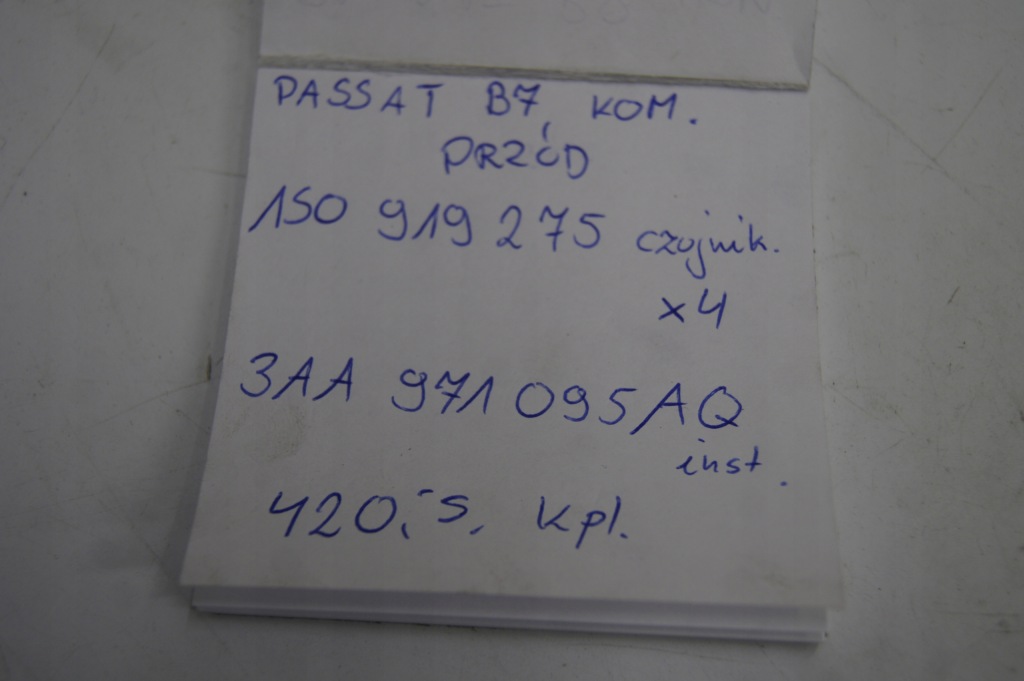 PASSAT B7, KOM.
PRZÓD
1S0 919 275 czojnik.
x4
3AA 971 095AQ
inst.
420,-s. kpl.